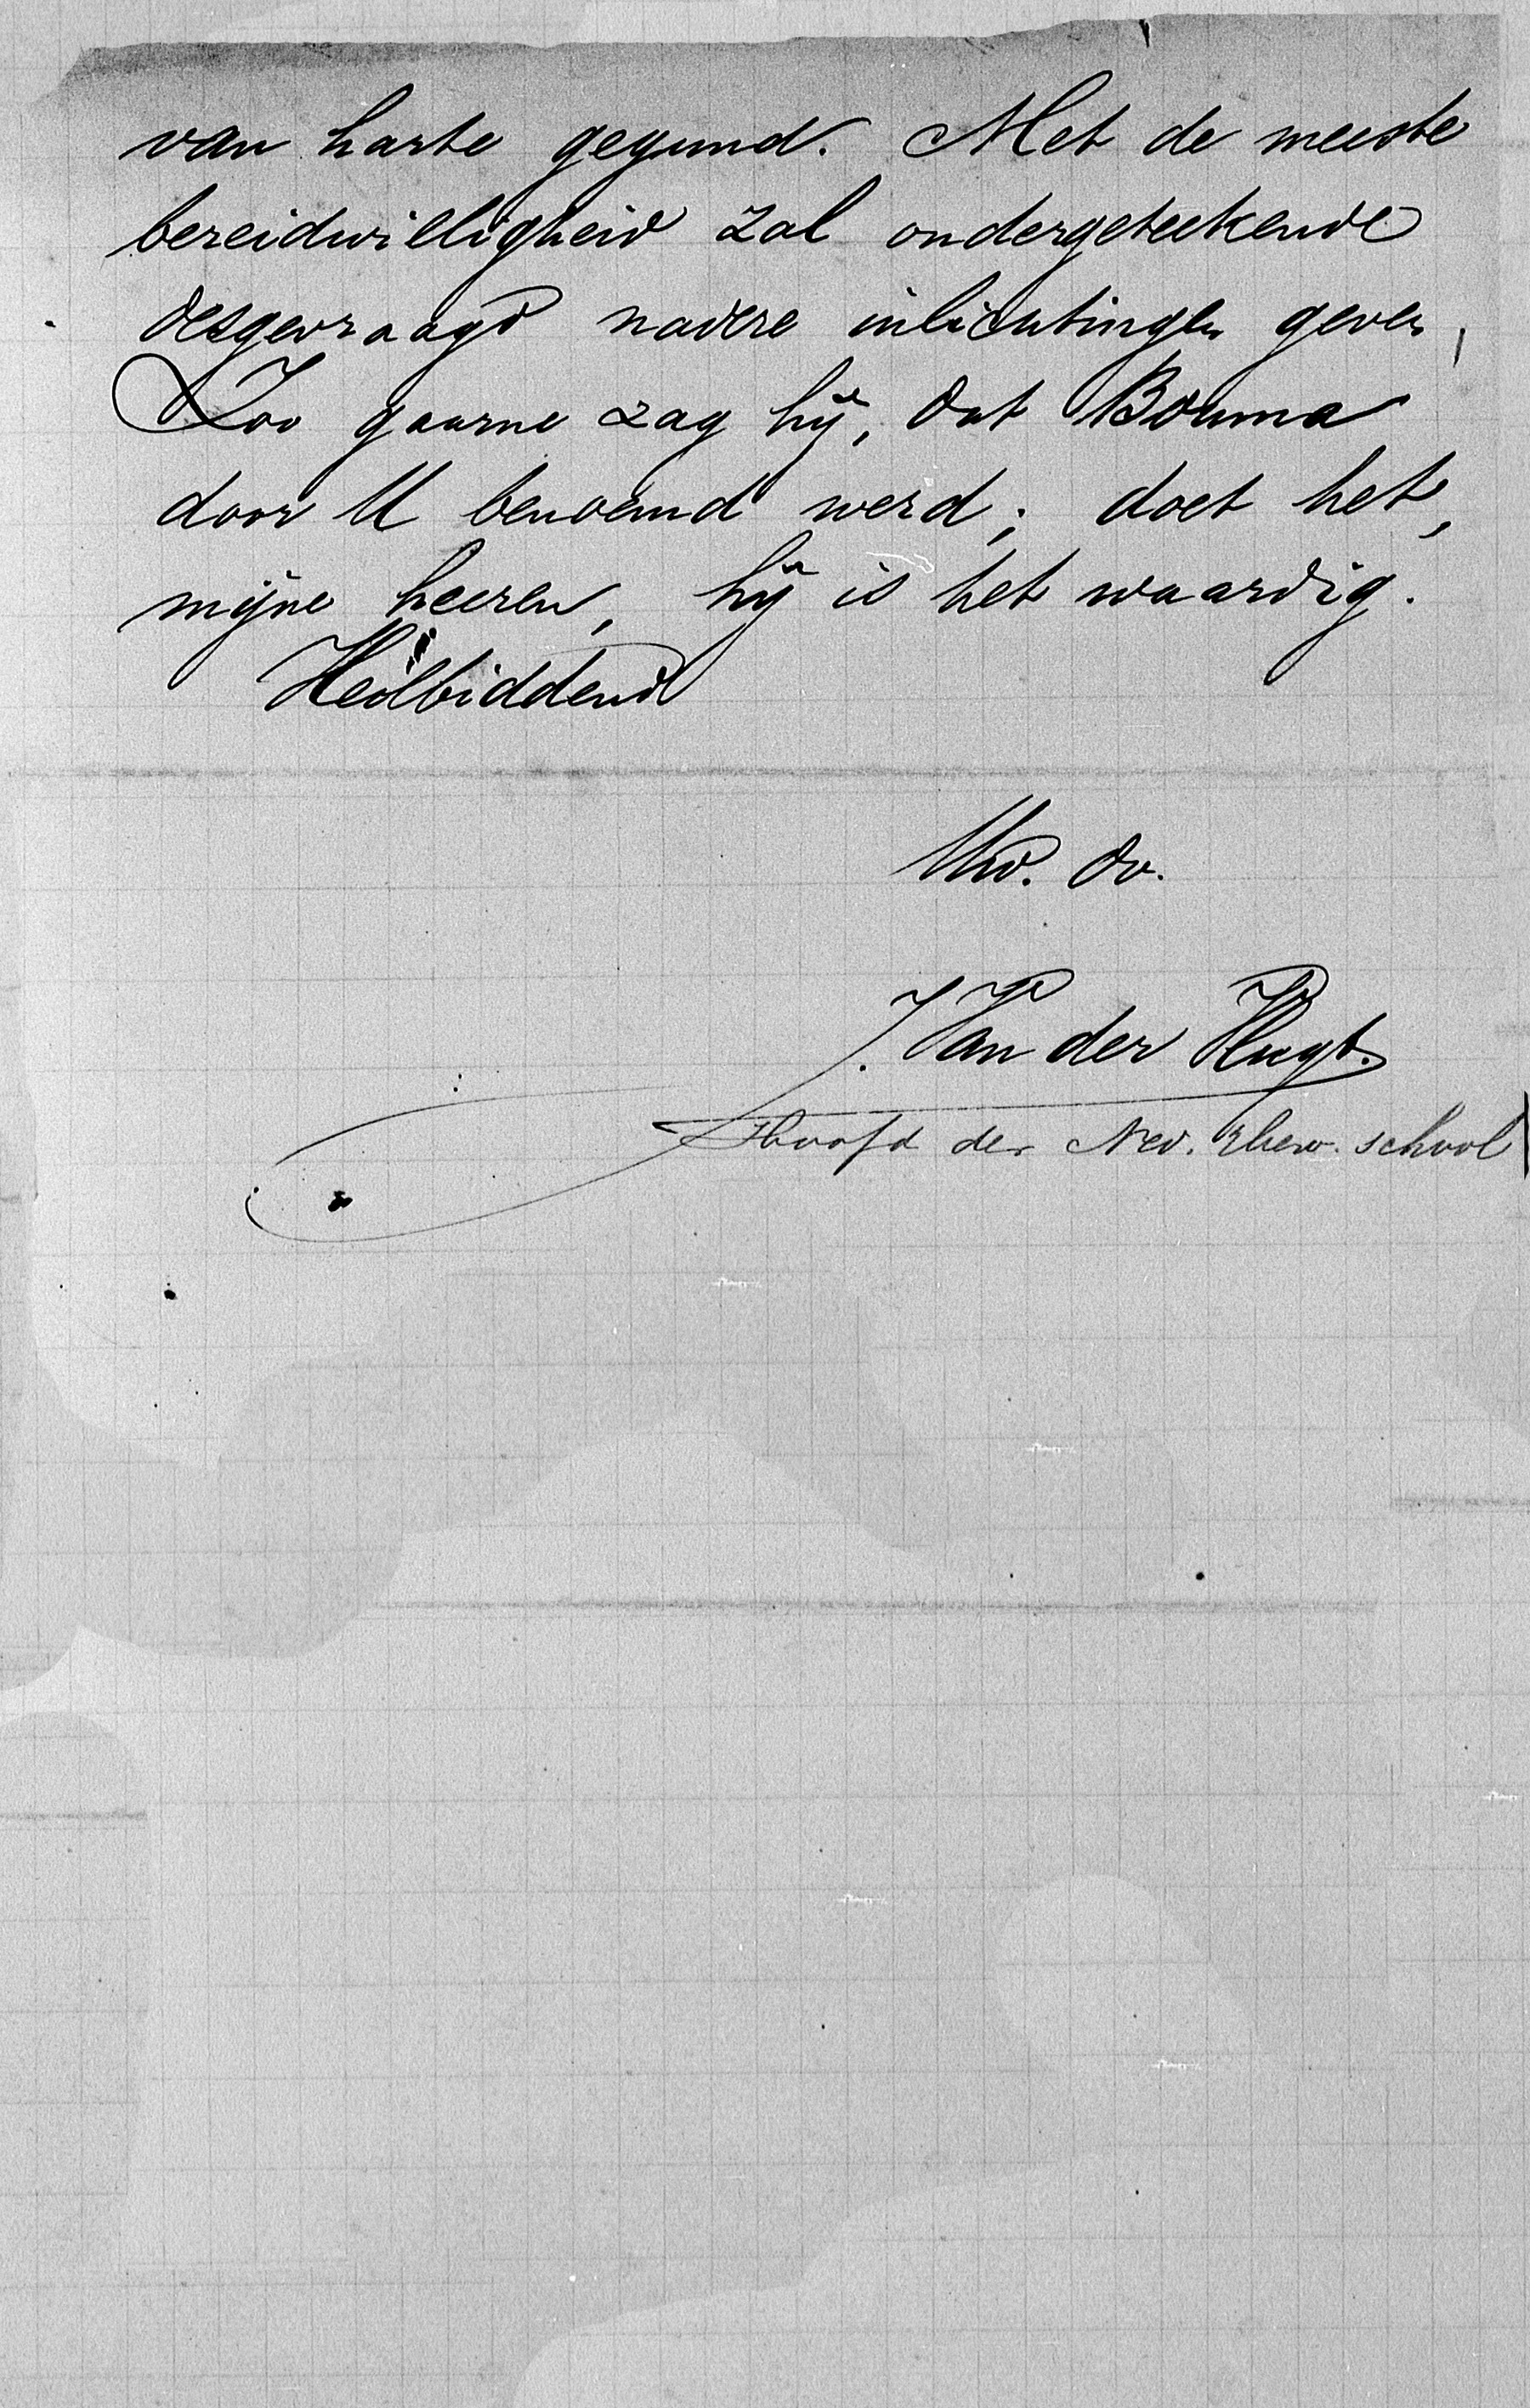 van harte gegund. Met de meeste
bereidwilligheid zal ondergeteekende
desgevraagd nadere inlichtingen geven,
Zoo gaarne zag hij, dat Bouma
door U benoemd werd; doet het,
mijne heeren, hij is het waardig.
Heilbiddend
Uw. dv.
J. Van der Vlugt.
Hoofd der Ned. Herv. school